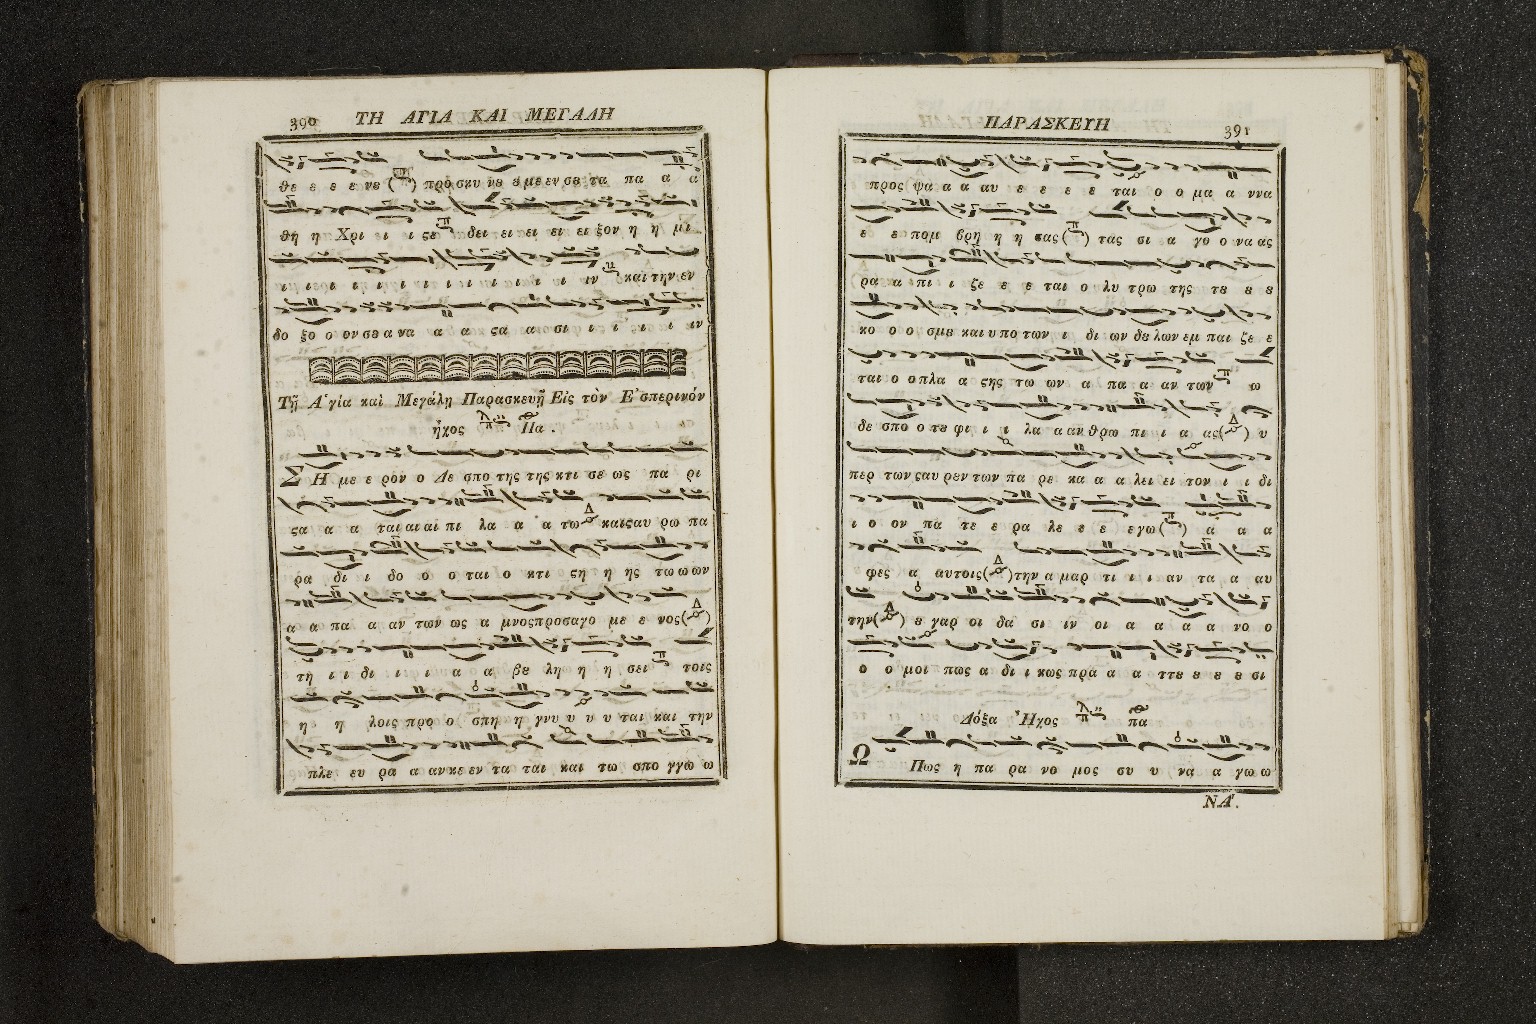 390 ΤΗ ΑΓΙΑ ΚΑΙ ΜΕΓΑΛΗ
θε ε ε ε νȣ ( ) προ σκυ νȣ ȣ με εν σε τα πα α α
θη η Χρι ι ι ϛε δει ει ει ει ει ξον η η μι
ι ι ι ι ι ι ι ι ι ι ι ι ι ιν και την εν
δο ξο ο ον σȣ α να α α ϛα α σι ι ι ι ι ιν
Τῇ Ἁγία καὶ Μεγάλῃ Παρασκευῇ Εἰς τὸν Ἑσπερινόν
ἦχος Πα .
Σ Η με ε ρον ο Δε σπο της της κτι σε ως πα ρι
ϛα α α ται αι αι πι λα α α τω και ϛαυ ρω πα
ρα δι ι δο ο ο ται ο κτι ϛη η ης τω ω ων
α α πα α αν των ως α μνος προσαγο με ε νος( )
τη ι ι δι ι ι ι α α βε λη η η σει τοις
η η λοις προ ο σπη η γνυ υ υ υ ται και την
πλε ευ ρα α αν κε εν τα ται και τω σπο γγω ω
ΠΑΡΑΣΚΕΥΗ 391
προς ψα α α αυ ε ε ε ε ται ο ο μα α ννα
ε ε πομ βρη η η σας ( ) τας σι α γο ο να ας
ρα α πι ι ζε ε ε ται ο λυ τρω της τȣ ȣ ȣ
κο ο ο σμȣ και υ πο των ι δι ων δȣ λων εμ παι ζε ε
ται ο ο πλα α ϛης τω ων α πα α αν των ω
δε σπο ο τȣ φι ι ι λα α αν θρω πι ι α ας( ) υ
περ των ϛαυ ρεν των πα ρε κα α α λει ει τον ι ι δι
ι ο ον πα τε ε ρα λε ε ε εγω ( ) α α α
φες α αυτοις( )την α μαρ τι ι ι αν τα α αυ
την( ) ȣ γαρ οι δα σι ιν οι α α α α νο ο
ο ο μοι πως α δι ι κως πρα α α ττȣ ȣ ȣ ȣ σι
Δόξα Ἦχος πα
Ω Πως η πα ρα νο μος συ υ να α γω ω
ΝΑ.